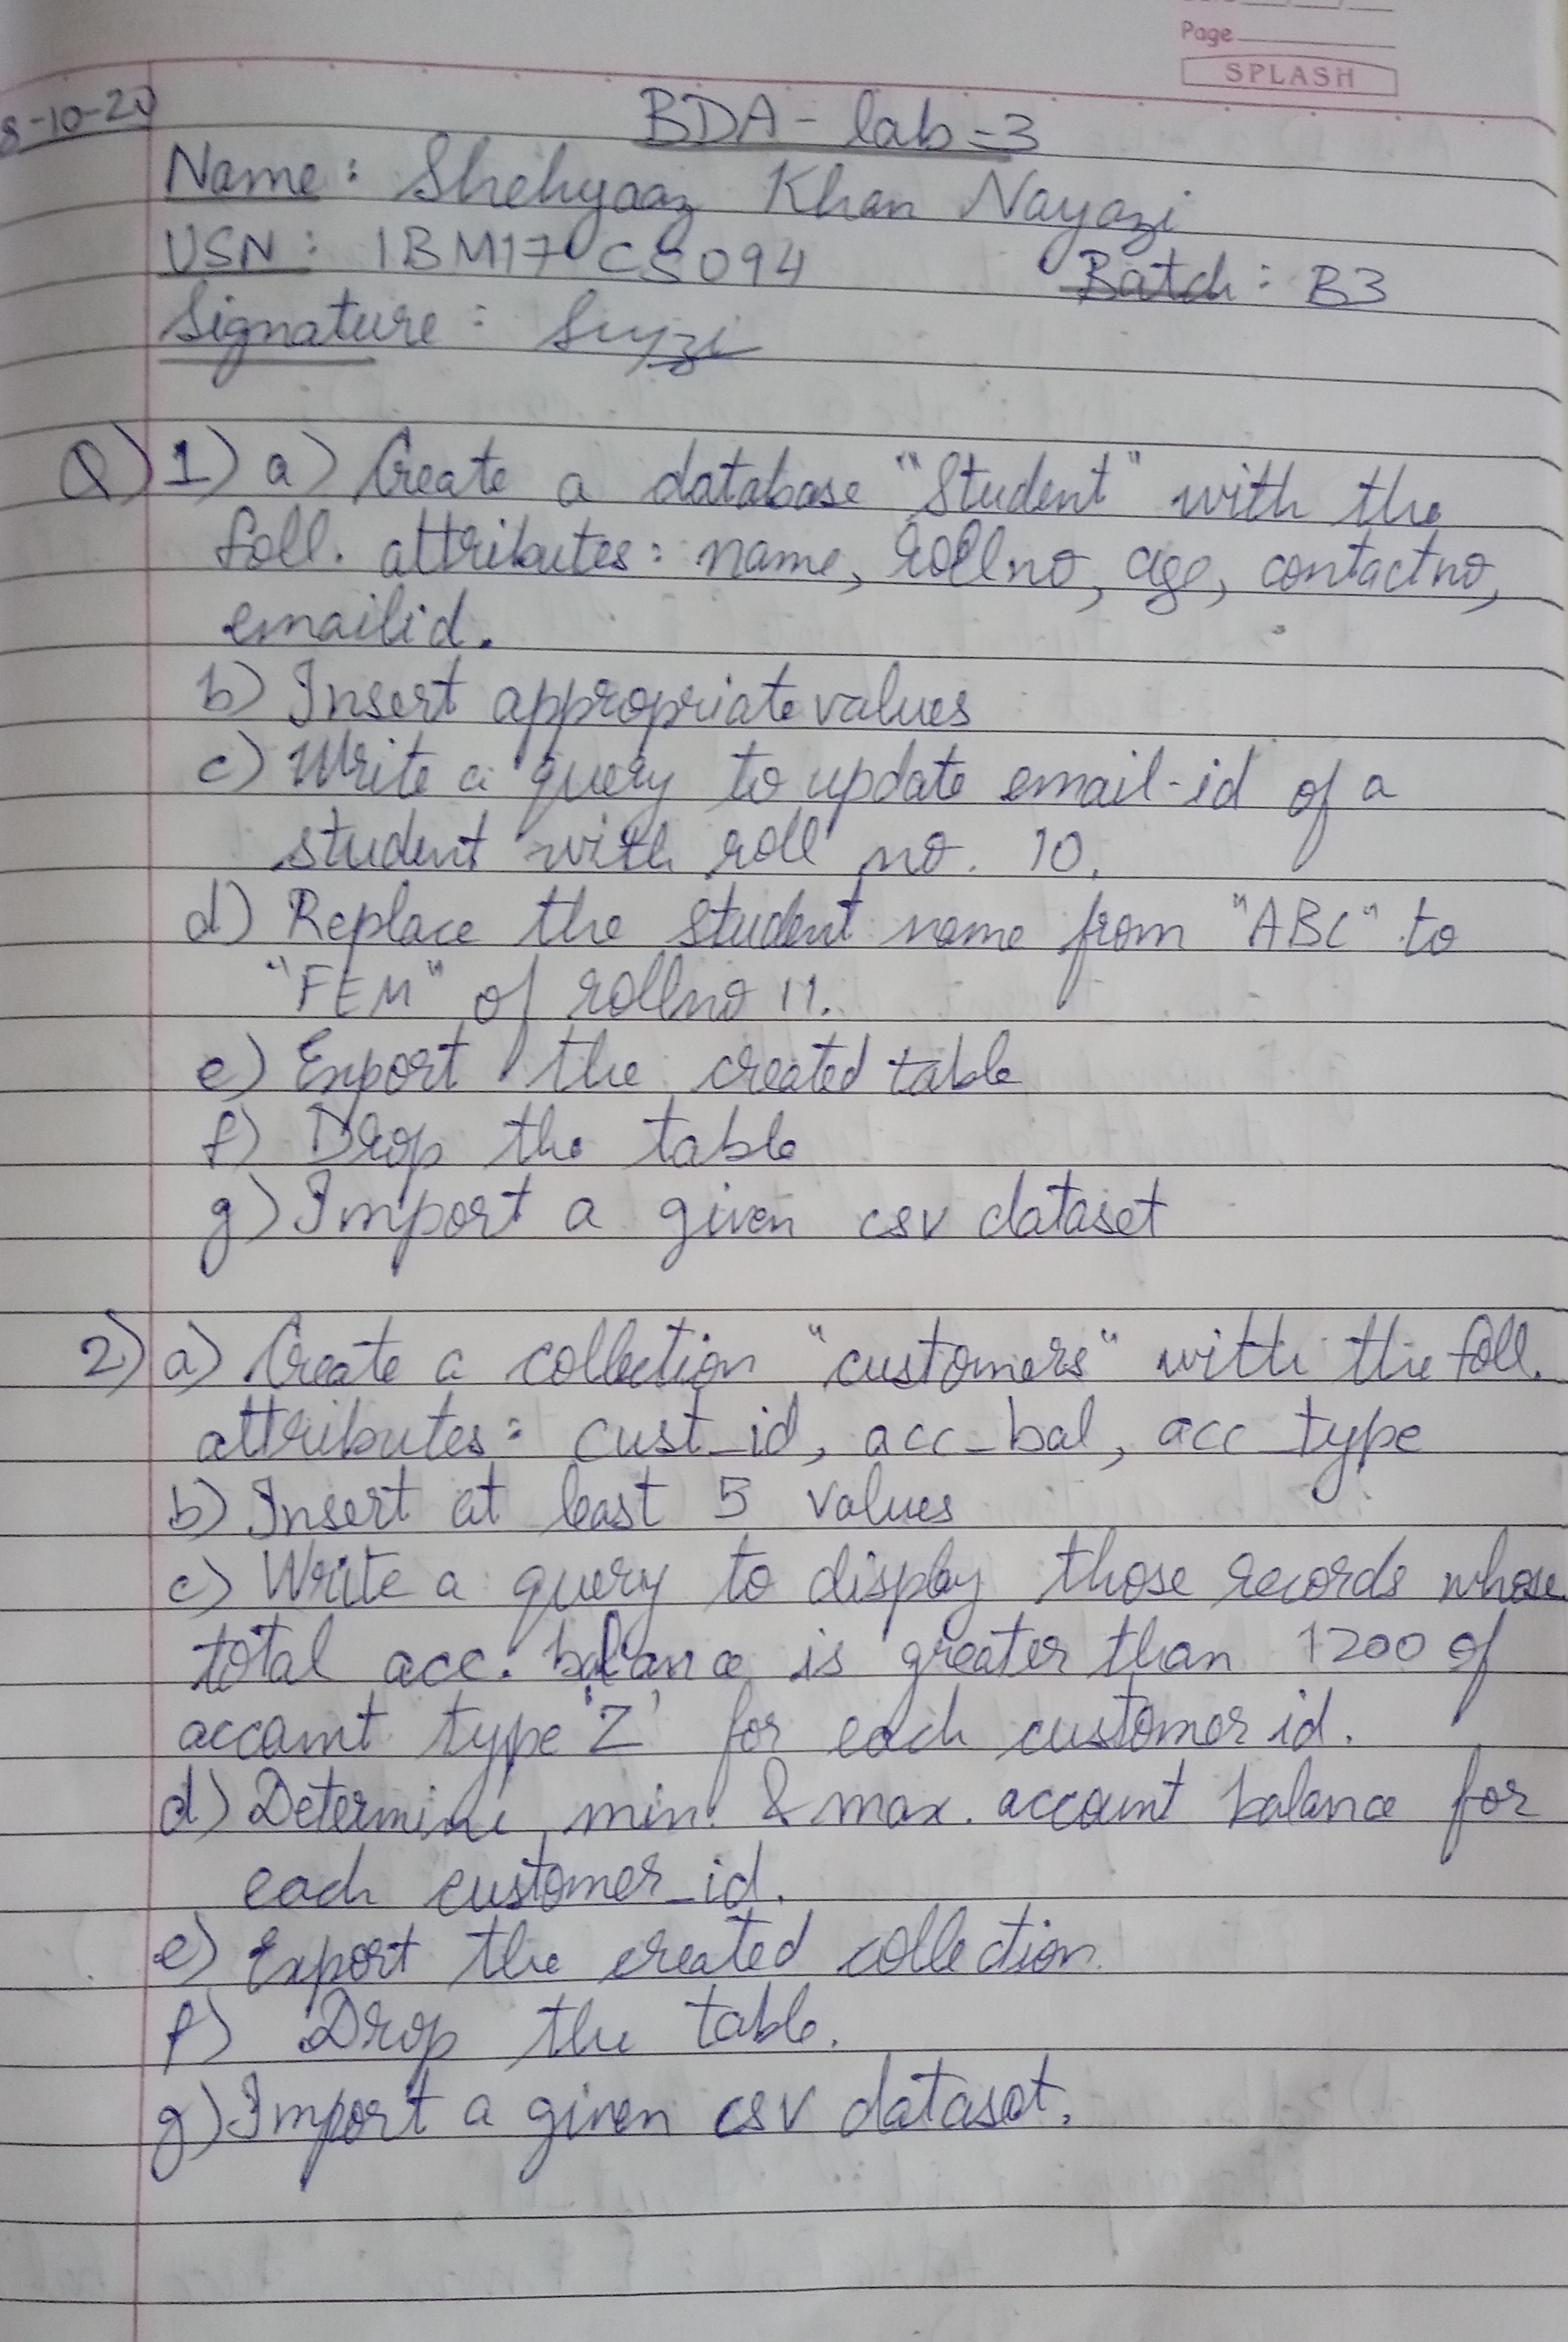 Page
SPLASH
8-10-20
BDA - lab-3
Name: Shehyaaz Khan Nayazi
USN: 1BM17CS094 Batch: B3
Signature:
Q) 1) a) Create a database "Student" with the
foll. attributes: name, rollno, age, contactno,
emailid.
b) Insert appropriate values
c) Write a query to update email-id of a
student with roll no. 10.
d) Replace the student name from "ABC" to
"FEM" of rollno 11.
e) Export the created table
f) Drop the table
g) Import a given csv dataset
2) a) Create a collection "customers" with the foll.
attributes: cust_id, acc_bal, acc_type
b) Insert at least 5 values
c) Write a query to display those records whose
total acc. balance is greater than 1200 of
account type 'Z' for each customer id.
d) Determine min. & max. account balance for
each customer_id.
e) Export the created collection.
f) Drop the table.
g) Import a given csv dataset.